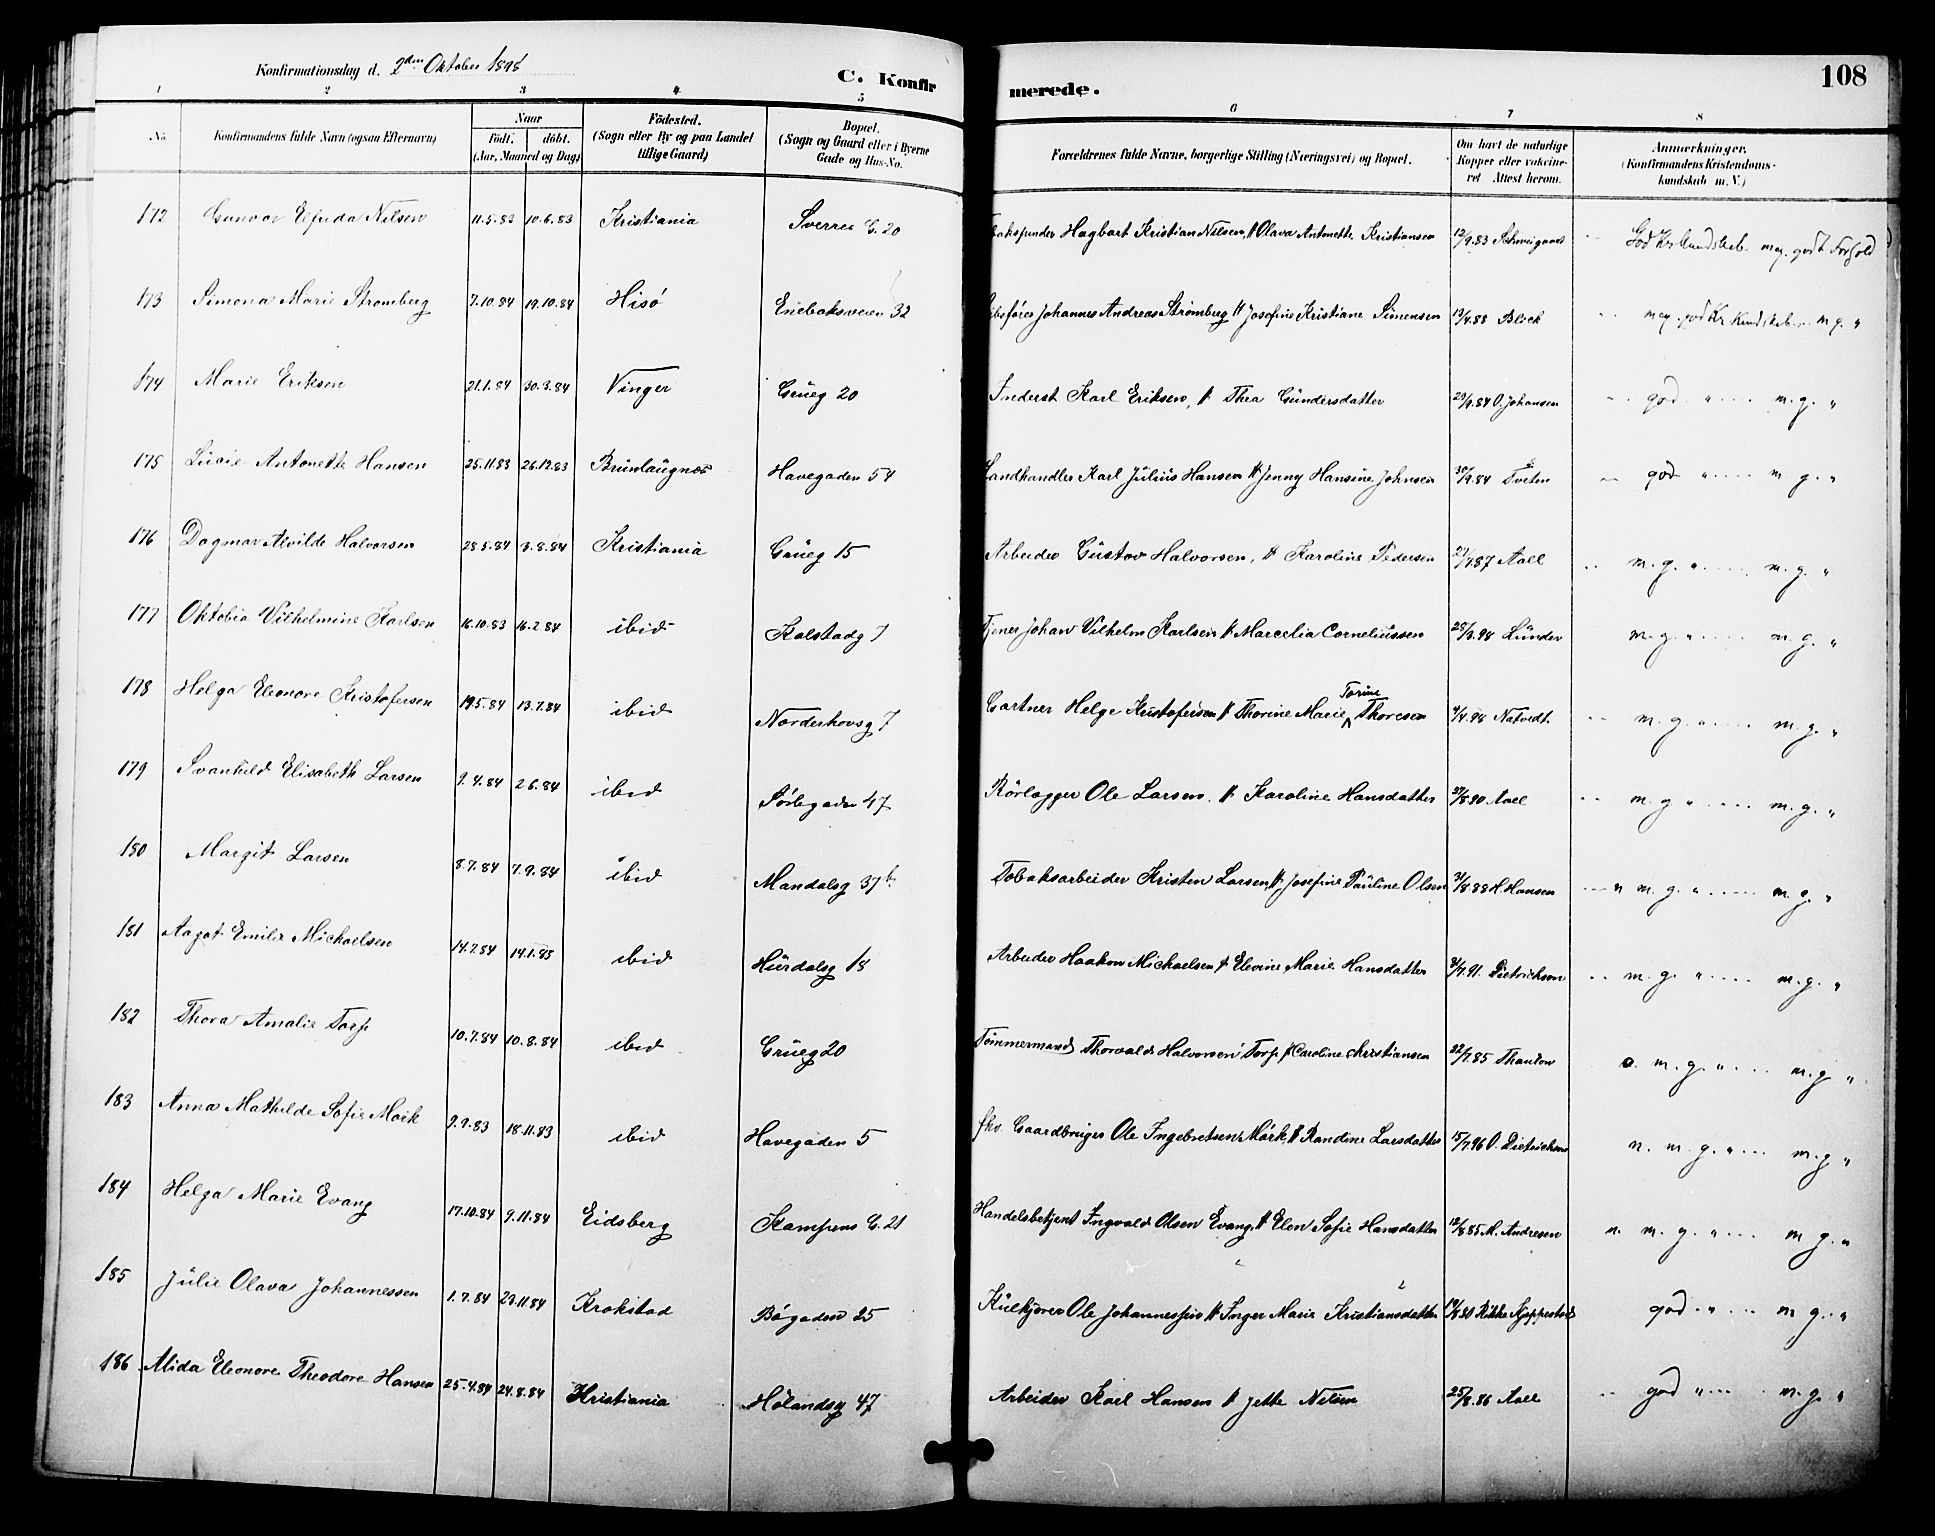 Konfirmationsdag d. 2den Oktober 1898
C. Konfirmerede.
108
1 2 3 4 5 6 7 8
No. Konfirmandens fulde Navn (ogsaa Efternavn) Naar födt. döbt. (Aar, Maaned og Dag) Födested. (Sogn eller By og paa Landet tillige Gaard) Bopæl. (Sogn og Gaard eller i Byerne Gade og Hus-No. Forældrenes fulde Navne, borgerlige Stilling (Næringsvei) og Bopæl. Om havt de naturlige Kopper eller vakcineret Attest herom. Anmærkninger. (Konfirmandens Kristendomskundskab m. V.)
172 Gunvor Elfrida Nilsen 11.5.83 10.6.83 Kristiania Sverres G. 20 Hagbart Kristian Nilsen, & Olava Antonette Kristiansen 12/9.83 Schweigaard God Kr Kundskab. meg. godt Forhold
173 Simona Marie Strømberg 7.10.84 19.10.84 Hisö Enebaksveien 32 Johannes Andreas Strømberg & Josefine Kristiane Simensen 13/4.88 Block meg. god Kr Kundskab m g. "
174 Marie Eriksen 21.1.84 30.3.84 Vinger Grüeg 20 Inderst Karl Eriksen, & Thea Gundersdatter 29/9.84 O. Johansen god " m. g. "
175 Lucie Antonette Hansen 25.11.83 26.12.83 Brunlaugnes Havegaden 54 Landhandler Karl Julius Hansen & Jenny Hansine Johnsen 30/9.84 Tveten god " m g. "
176 Dagmar Alvilde Halvorsen 28.5.84 3.8.84 Kristiania Grüeg 15 Arbeider Gustav Halvorsen, & Karoline Pedersen 27/7.87 Aall m. g. " m. g. "
177 Oktobia Vilhelmine Karlsen 16.10.83 16.2.84 ibid Kalstadg 7 Tjener Johan Vilhelm Karlsen & Marcelia Corneliussen 28/3.98 Lunder m. g. " m. g. "
178 Helga Eleonore Kristofersen 19.5.84 13.7.84 ibid Norderhovsg 7 Gartner Helge Kristofersen & Thorine Marie Torine Thoresen 4/4.98 Natvedt m. g. " m. g. "
179 Svanhild Elisabeth Larsen 9.4.84 2.6.84 ibid Sörligaden 47 Rörlægger Ole Larsen, & Karoline Hansdatter /8.90 Aall m. g " m. g. "
180 Margit Larsen 8.7.84 7.9.84 ibid Mandalsg 37b Tobaksarbeider Kristen Larsen & Josefine Pauline Olsen /8.88 H. Hansen m. g. " m. g. "
181 Aagot Emilie Michaelsen 14.7.84 14.1.85 ibid Hurdalsg 18 Arbeider Haakon Michaelsen & Elevine Marie Hansdatter /7.91. Dietrichson m. g. " m. g. "
182 Thora Amalie Torp 10.7.84 10.8.84 ibid Grüeg 20 Tømmermand Thorvald Halvorsen Torp & Caroline Kristiansen 22/7.85 Thaulow m. g. " m. g "
183 Anna Mathilde Sofie Mørk 9.9.83 18.11.83 ibid Havegaden 5 fhv. Gaardbruger Ole Ingebretsen Mørk, & Randine Larsdatter 15/7.96 O. Dietrichson m. g. " m. g "
184 Helga Marie Evang 17.10.84 9.11.84 Eidsberg Kampens G. 21 Handelsbetjent Ingvald Olsen Evang, & Elen Sofie Hansdatter 12/8.85 M. Andresen m. g. " m g. "
185 Julie Olava Johannessen 1.7.84 23.11.84 Krokstad Bøgaden 25 Kulkjører Ole Johannessen & Inger Marie Kristiansdatter Rikke Kjeppestad god " m g. "
186 Alida Eleonore Theodore Hansen 25.4.84 24.8.84 Kristiania Hølandsg 47 Arbeider Karl Hansen & Jette Nilsen 25/8.86 Aall god " m. g. "